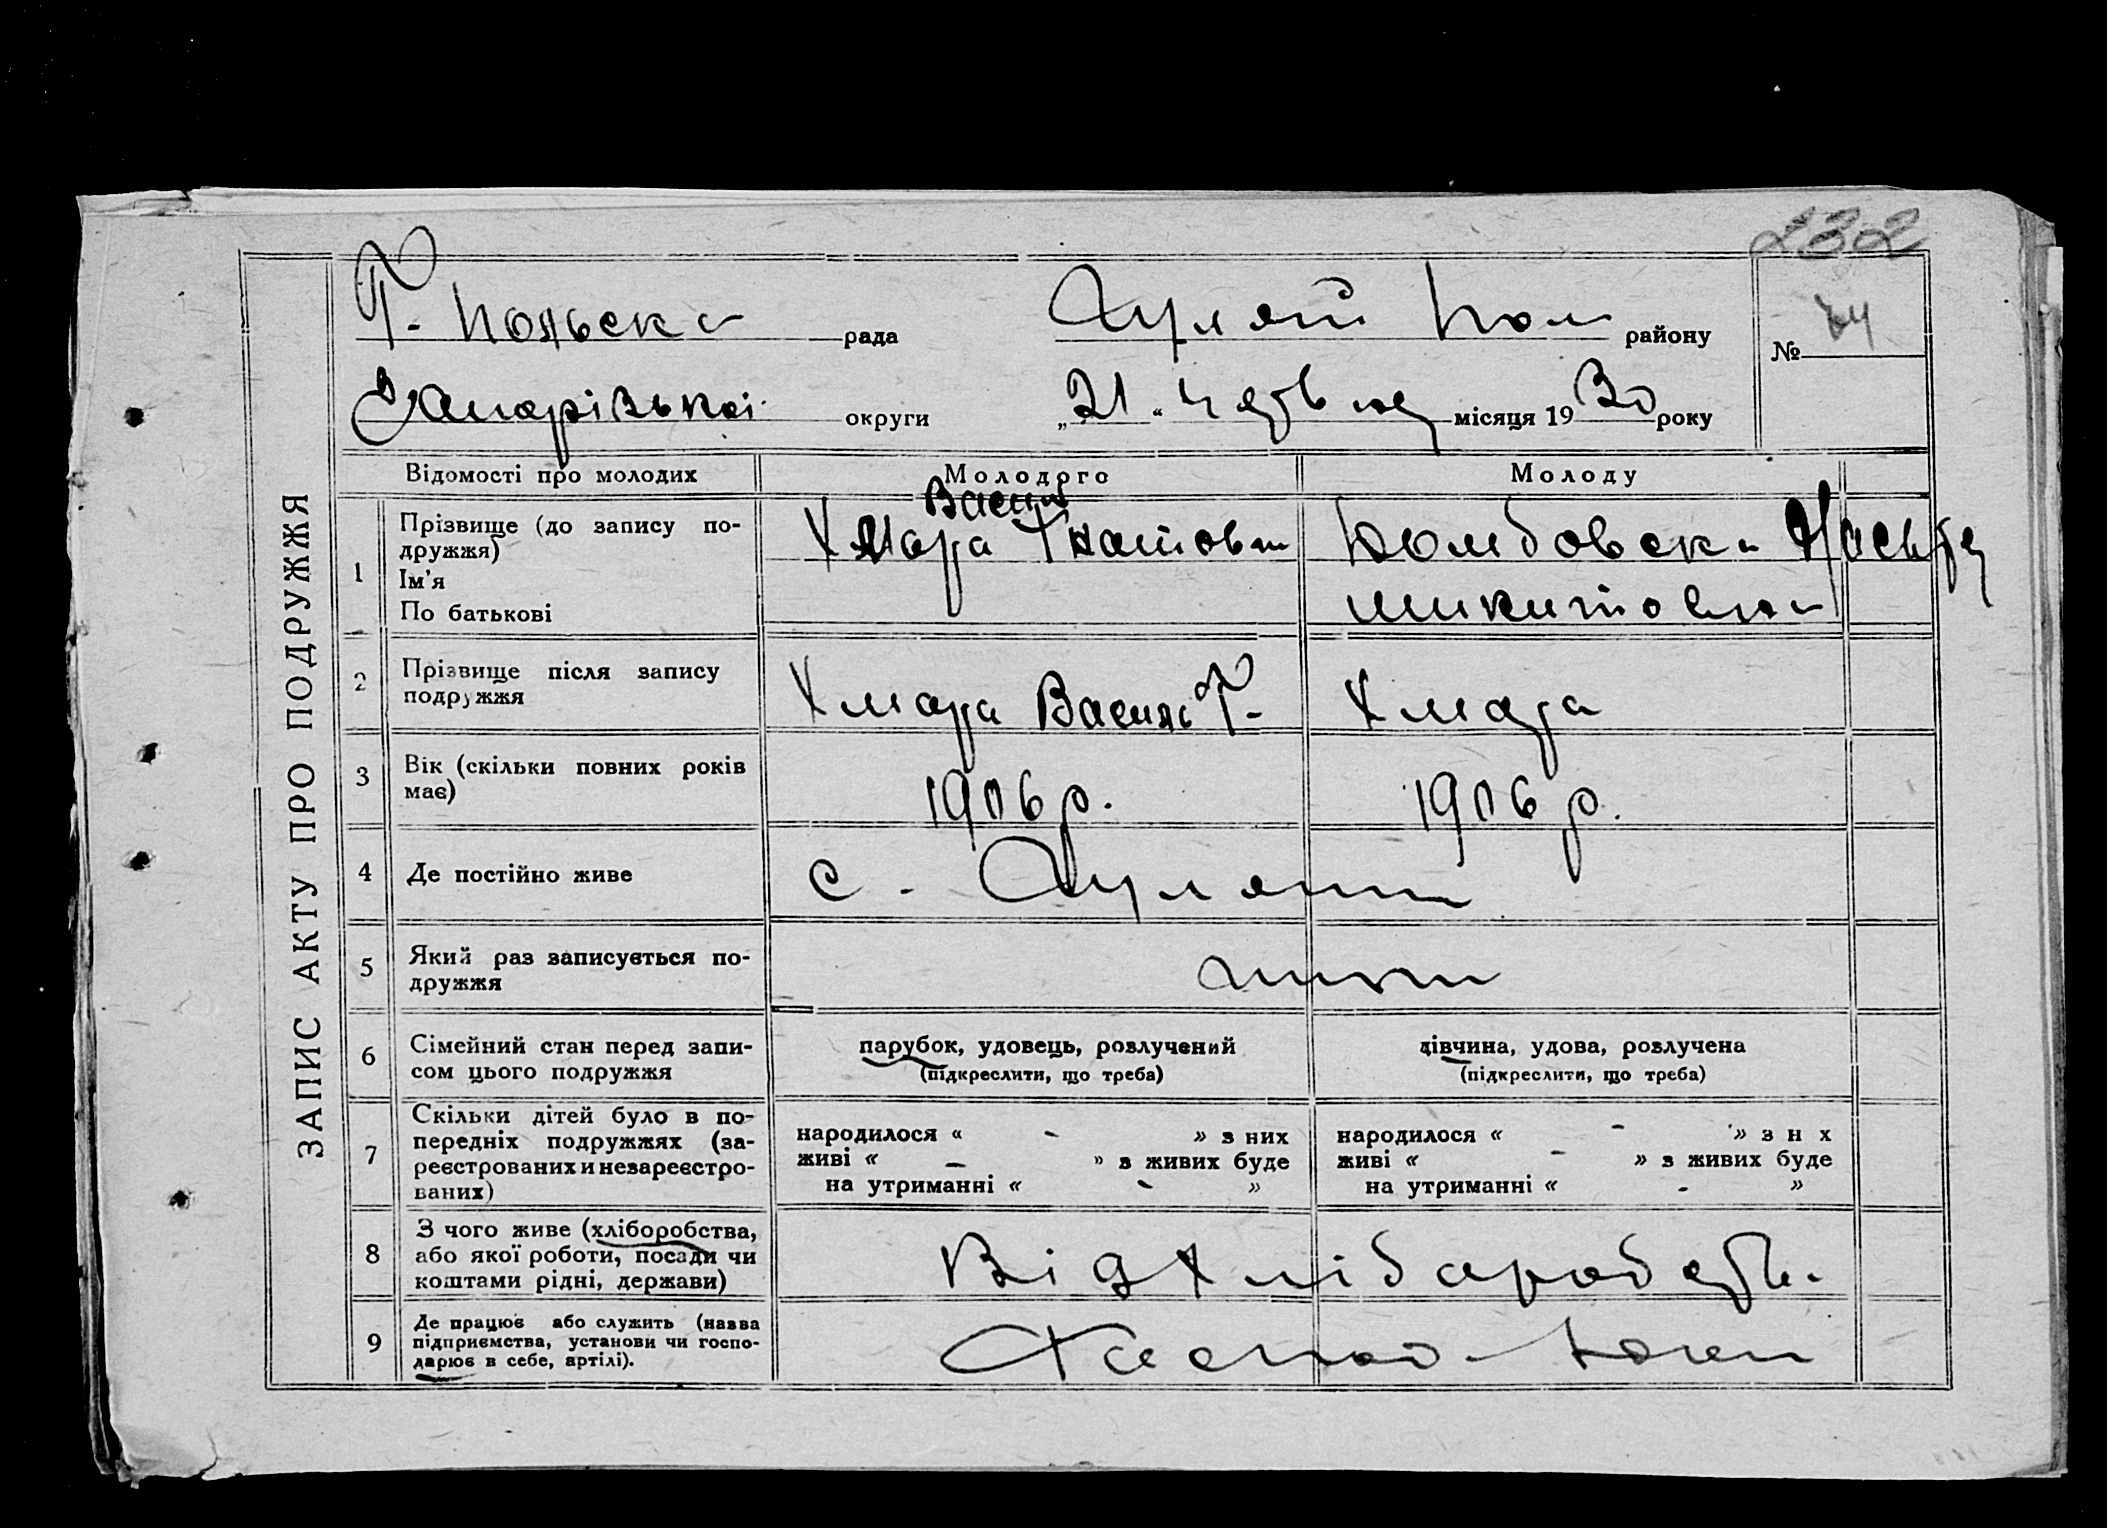 232
Г. Польська рада Гуляй Пол району
№ 74
Запорізької округи „21“ Червця місяця 1930 року
ЗАПИС АКТУ ПРО ПОДРУЖЖЯ
Відомості про молодих Молодого Молоду
1 Прізвище (до запису по-
дружжя)
Ім'я
По батькові
Василь
Хмара Гнатович
Домбовска
Микитовна
2 Прізвище після запису
подружжя
Хмара Василь Г. Хмара
3 Вік (скільки повних років
має)
1906 р. 1906 р.
4 Де постійно живе с. Гуляй
5 Який раз записується по-
дружжя
6 Сімейний стан перед запи-
сом цього подружжя
парубок, удовець, розлучений
(підкреслити, що треба)
дівчина, удова, розлучена
(підкреслити, що треба)
7 Скільки дітей було в по-
передніх подружжях (за-
реєстрованих и незареєстро-
ваних)
народилося « - » з них
живі « - » з живих буде
на утриманні « - »
народилося « - » з н х
живі « - » з живих буде
на утриманні « - »
8 З чого живе (хліборобства,
або якої роботи, посади чи
коштами рідні, держави)
Від хліборобства
9 Де працює або служить (назва
підприємства, установи чи госпо-
дарює в себе, артілі).